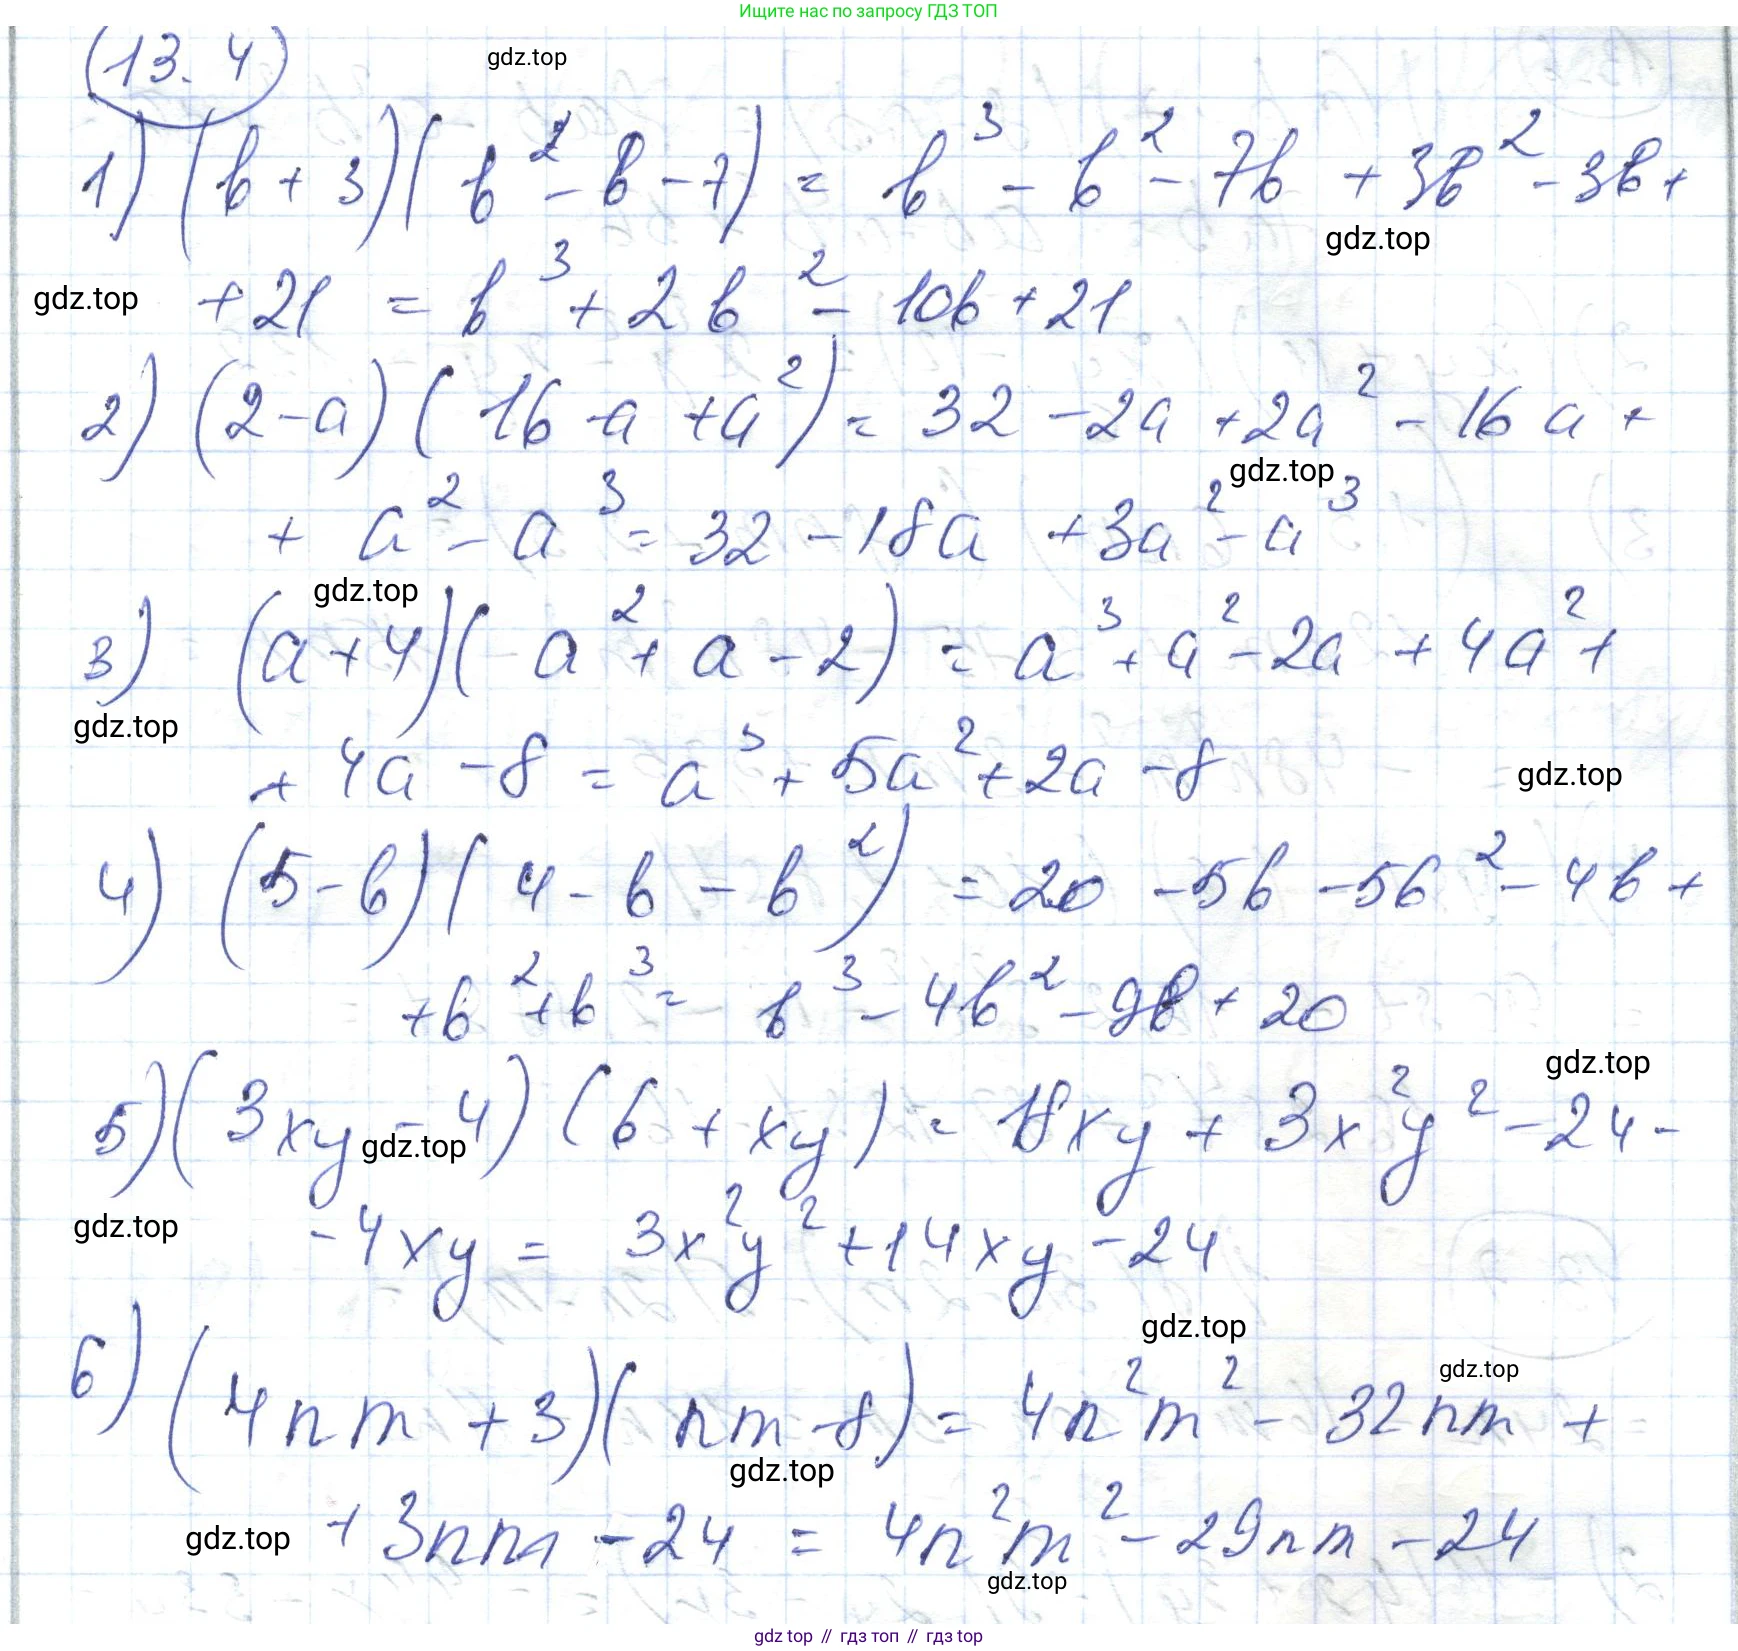 Ищите нас по запросу ГДЗ ТОП
13.4
gdz.top
1) (b+3)(b² - b - 7) = b³ - b² - 7b + 3b² - 3b +
gdz.top
gdz.top
+21 = b³ + 2b² - 10b + 21
2) (2-a)(16 - a + a²) = 32 - 2a + 2a² - 16a +
gdz.top
+ a² - a³ = 32 - 18a + 3a² - a³
gdz.top
3) (a+4)(a² + a - 2) = a³ + a² - 2a + 4a² +
gdz.top
+ 4a - 8 = a³ + 5a² + 2a - 8
gdz.top
4) (5-b)(4 - b - b²) = 20 - 5b - 5b² - 4b +
+b² + b³ = b³ - 4b² - 9b + 20
gdz.top
5) (3xy - 4)(6 + xy) = 18xy + 3x²y² - 24 -
gdz.top
gdz.top
-4xy = 3x²y² + 14xy - 24
gdz.top
gdz.top
6) (4nm + 3)(nm - 8) = 4n²m² - 32nm +
gdz.top
gdz.top
+ 3nm - 24 = 4n²m² - 29nm - 24
gdz.top
gdz top // гдз топ // гдз top